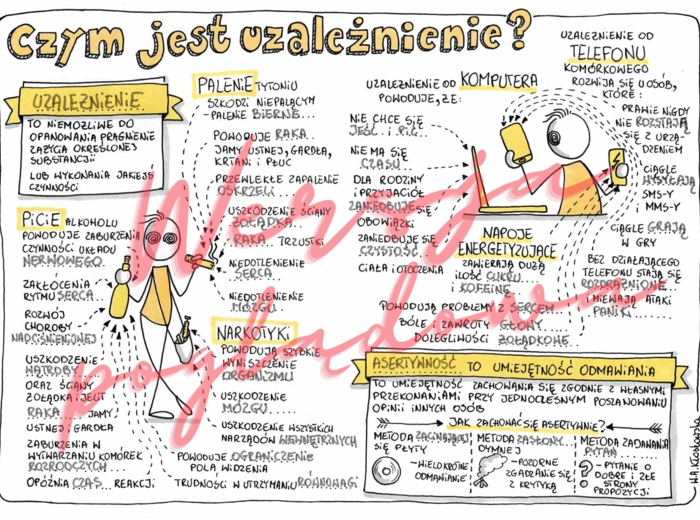 Czym jest uzależnienie?
UZALEŻNIENIE
TO NIEMOŻLIWE DO
OPANOWANIA PRAGNIENIE
ZAŻYCIA OKREŚLONEJ
SUBSTANCJI
LUB WYKONANIA JAKIEJŚ
CZYNNOŚCI
PALENIE TYTONIU
SZKODZI NIEPALĄCYM -
PALENIE BIERNE...
POWODUJE RAKA...
JAMY USTNEJ, GARDŁA,
KRTANI I PŁUC
PRZEWLEKŁE ZAPALENIE
OSKRZELI...
USZKODZENIE ŚCIANY
ŻOŁĄDKA..
RAKA... TRZUSTKI
NIEDOTLENIENIE
SERCA..
NIEDOTLENIENIE
MÓZGU...
PICIE ALKOHOLU
POWODUJE ZABURZENIA
CZYNNOŚCI UKŁADU
NERWOWEGO.
ZAKŁÓCENIA
RYTMU SERCA..
ROZWÓJ
CHOROBY
NADCIŚNIENIOWEJ
USZKODZENIE
WĄTROBY...
ORAZ ŚCIANY
ŻOŁĄDKA I JELIT
RAKA.... JAMY
USTNEJ I GARDŁA
ZABURZENIA W
WYTWARZANIU KOMÓREK
ROZRODCZYCH...
OPÓŹNIA CZAS... REAKCJI
NARKOTYKI
POWODUJĄ SZYBKIE
WYNISZCZENIE
ORGANIZMU
USZKODZENIE
MÓZGU.....
USZKODZENIE WSZYSTKICH
NARZĄDÓW WEWNĘTRZNYCH
POWODUJE OGRANICZENIE
POLA WIDZENIA
TRUDNOŚCI W UTRZYMANIU RÓWNOWAGI
UZALEŻNIENIE OD KOMPUTERA
POWODUJE, ŻE:
NIE CHCE SIĘ
JEŚĆ.. I PIĆ..
NIE MA SIĘ
CZASU...
DLA RODZINY
I PRZYJACIÓŁ
ZANIEDBUJE SIĘ
OBOWIĄZKI
ZANIEDBUJE SIĘ
CZYSTOŚĆ..
CIAŁA I OTOCZENIA
UZALEŻNIENIE OD
TELEFONU
KOMÓRKOWEGO
ROZWIJA SIĘ U OSÓB,
KTÓRE:
PRAWIE NIGDY
NIE ROZSTAJĄ
SIĘ Z URZĄ-
DZENIEM
CIĄGLE
WYSYŁAJĄ
SMS-Y I
MMS-Y
CIĄGLE GRAJĄ
W GRY
BEZ DZIAŁAJĄCEGO
TELEFONU STAJĄ SIĘ
ROZDRAŻNIONE..
I MIEWAJĄ ATAKI
PANIKI.....
NAPOJE
ENERGETYZUJĄCE
ZAWIERAJĄ DUŻĄ
ILOŚĆ CUKRU..
I KOFEINĘ
POWODUJĄ PROBLEMY Z SERCEM...
BÓLE I ZAWROTY GŁOWY....
DOLEGLIWOŚCI ŻOŁĄDKOWE.
ASERTYWNOŚĆ TO UMIEJĘTNOŚĆ ODMAWIANIA
TO UMIEJĘTNOŚĆ ZACHOWANIA SIĘ ZGODNIE Z WŁASNYMI
PRZEKONANIAMI PRZY JEDNOCZESNYM POSZANOWANIU
OPINII INNYCH OSÓB
JAK ZACHOWAĆ SIĘ ASERTYWNIE?
METODA ZACINAJĄCEJ
SIĘ PŁYTY
- WIELOKROTNE
ODMAWIANIE
METODA ZASŁONY..
DYMNEJ
- POZORNE
ZGADZANIE SIĘ
Z KRYTYKĄ
METODA ZADAWANIA
PYTAŃ..
- PYTANIE O
DOBRE I ZŁE
STRONY
PROPOZYCJI
Wersja
poglądowa